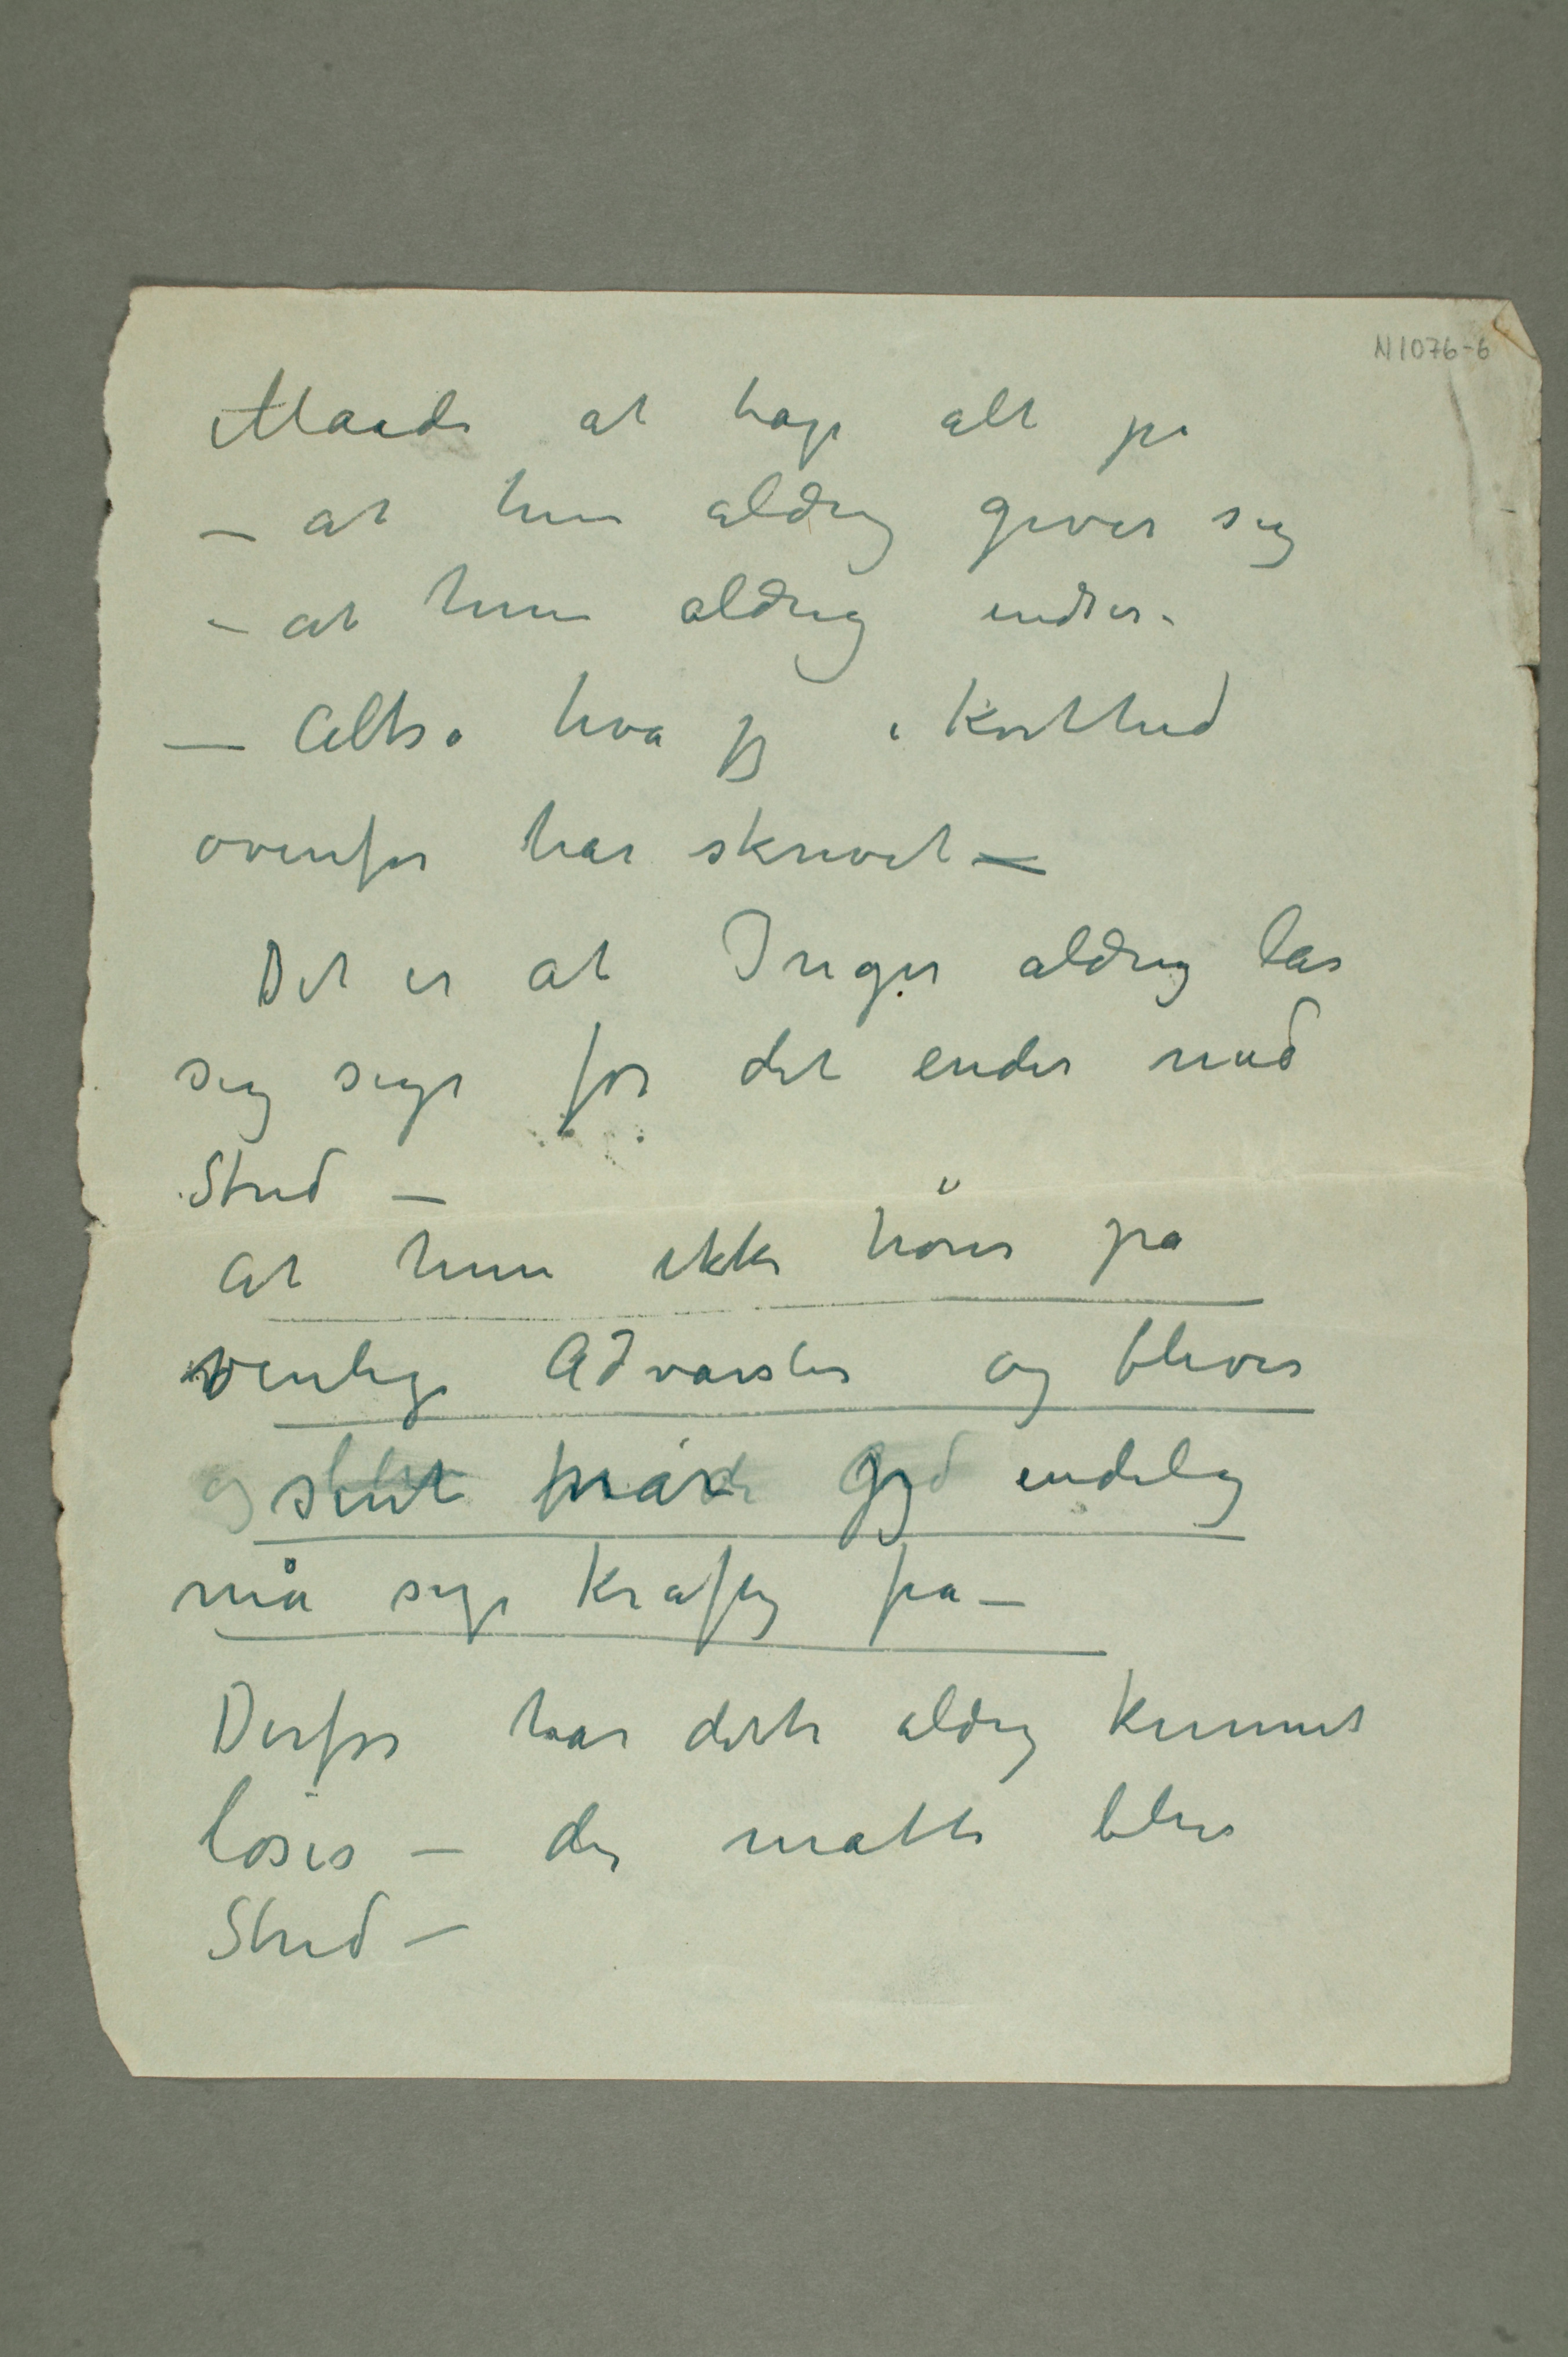 N 1076-6
Maade at tage alt på
– at hun aldrig giver sig
– at hun aldrig endres.
– Altså hva jeg i Korthed
ovenfor har skrevet –
Det er at Inger aldrig lar
sig sige før det ender med
Strid –
At hun ikke hører på
venlige Advarsler og bliver
når jeg endelig
må sige kraftig fra –
Derfor har dette aldrig kunnet
løses – der måtte blive
Strid –